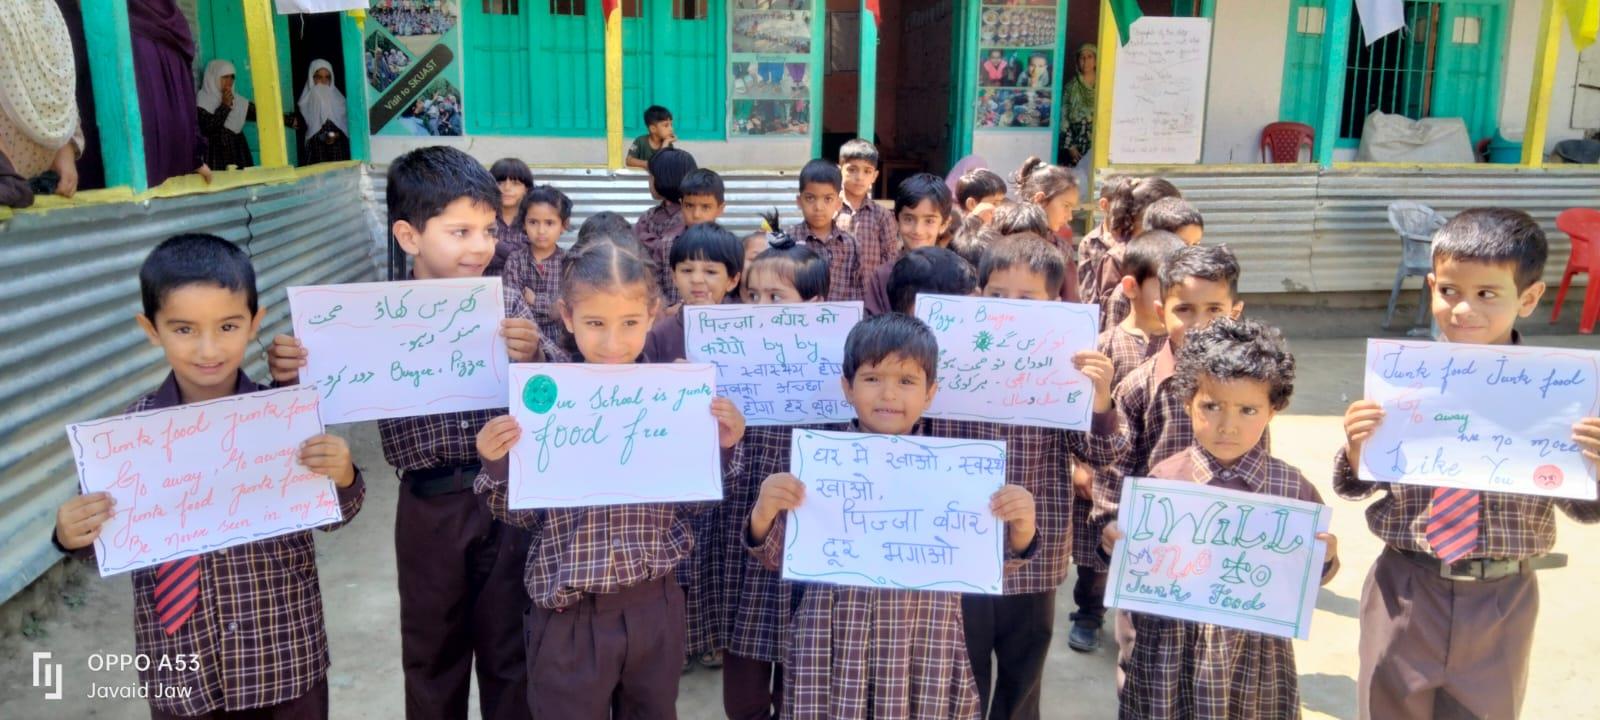 Visit to SKUAST
گھر میں کھاؤ صحت
مند رہو۔
Burger, Pizza دور کرو۔
पिज़्ज़ा, बर्गर को
करोगे by by
स्वास्थ्य
सबका अच्छा
होगा हर
Pizza, Burger
کو کریں گے
الوداع تو صحت ہوگی
سب کی اچھی۔ ہر کوئی
سال و سال۔
Junk food Junk food
Go away
We no more
Like You
Our School is junk
food free
Junk food junk food
Go away, Go away
Junk food junk food
Be never seen in my
घर मे खाओ, स्वस्थ
खाओ,
पिज्जा बर्गर
दूर भगाओ
I WILL
Say No to
Junk Food
OPPO A53
Javaid Jaw